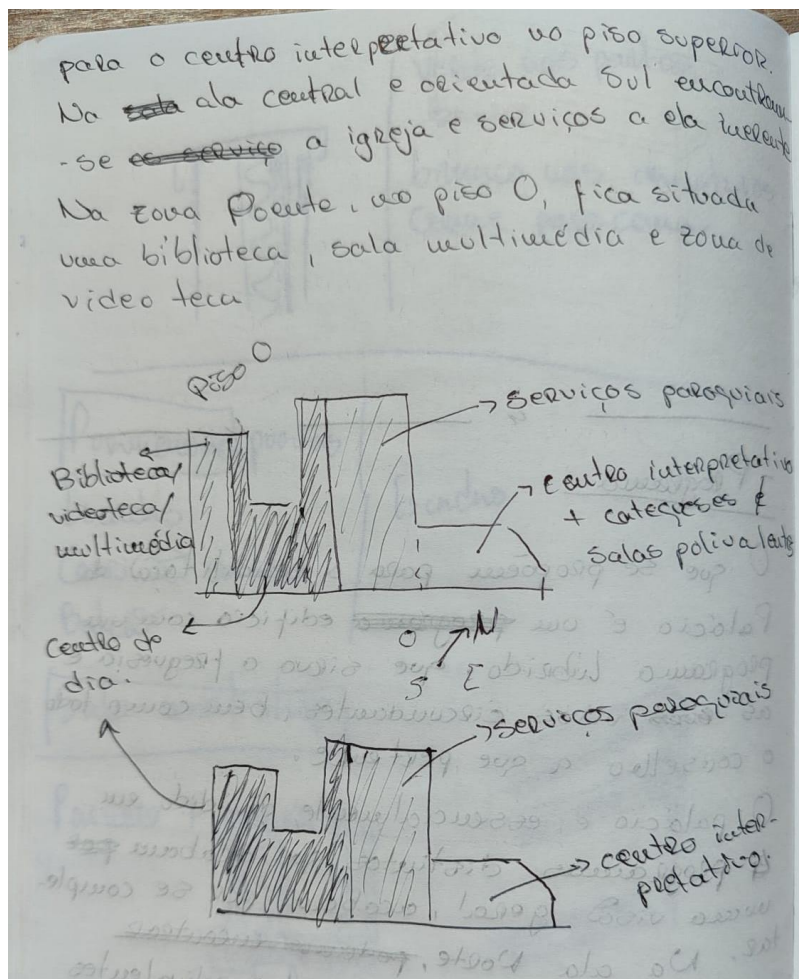 para o centro interpretativo no piso superior.
Na sala ala central e orientada Sul encontram
-se os serviço a igreja e serviços a ela inerente
Na zona Poente, no piso 0, fica situada
uma biblioteca, sala multimédia e zona de
video teca
Piso 0
serviços paroquiais
Biblioteca/
videoteca/
multimédia
centro interpretativo
+ catequeses e
salas polivalente
centro de
dia.
O N
S E
serviços paroquiais
centro inter-
pretativo.